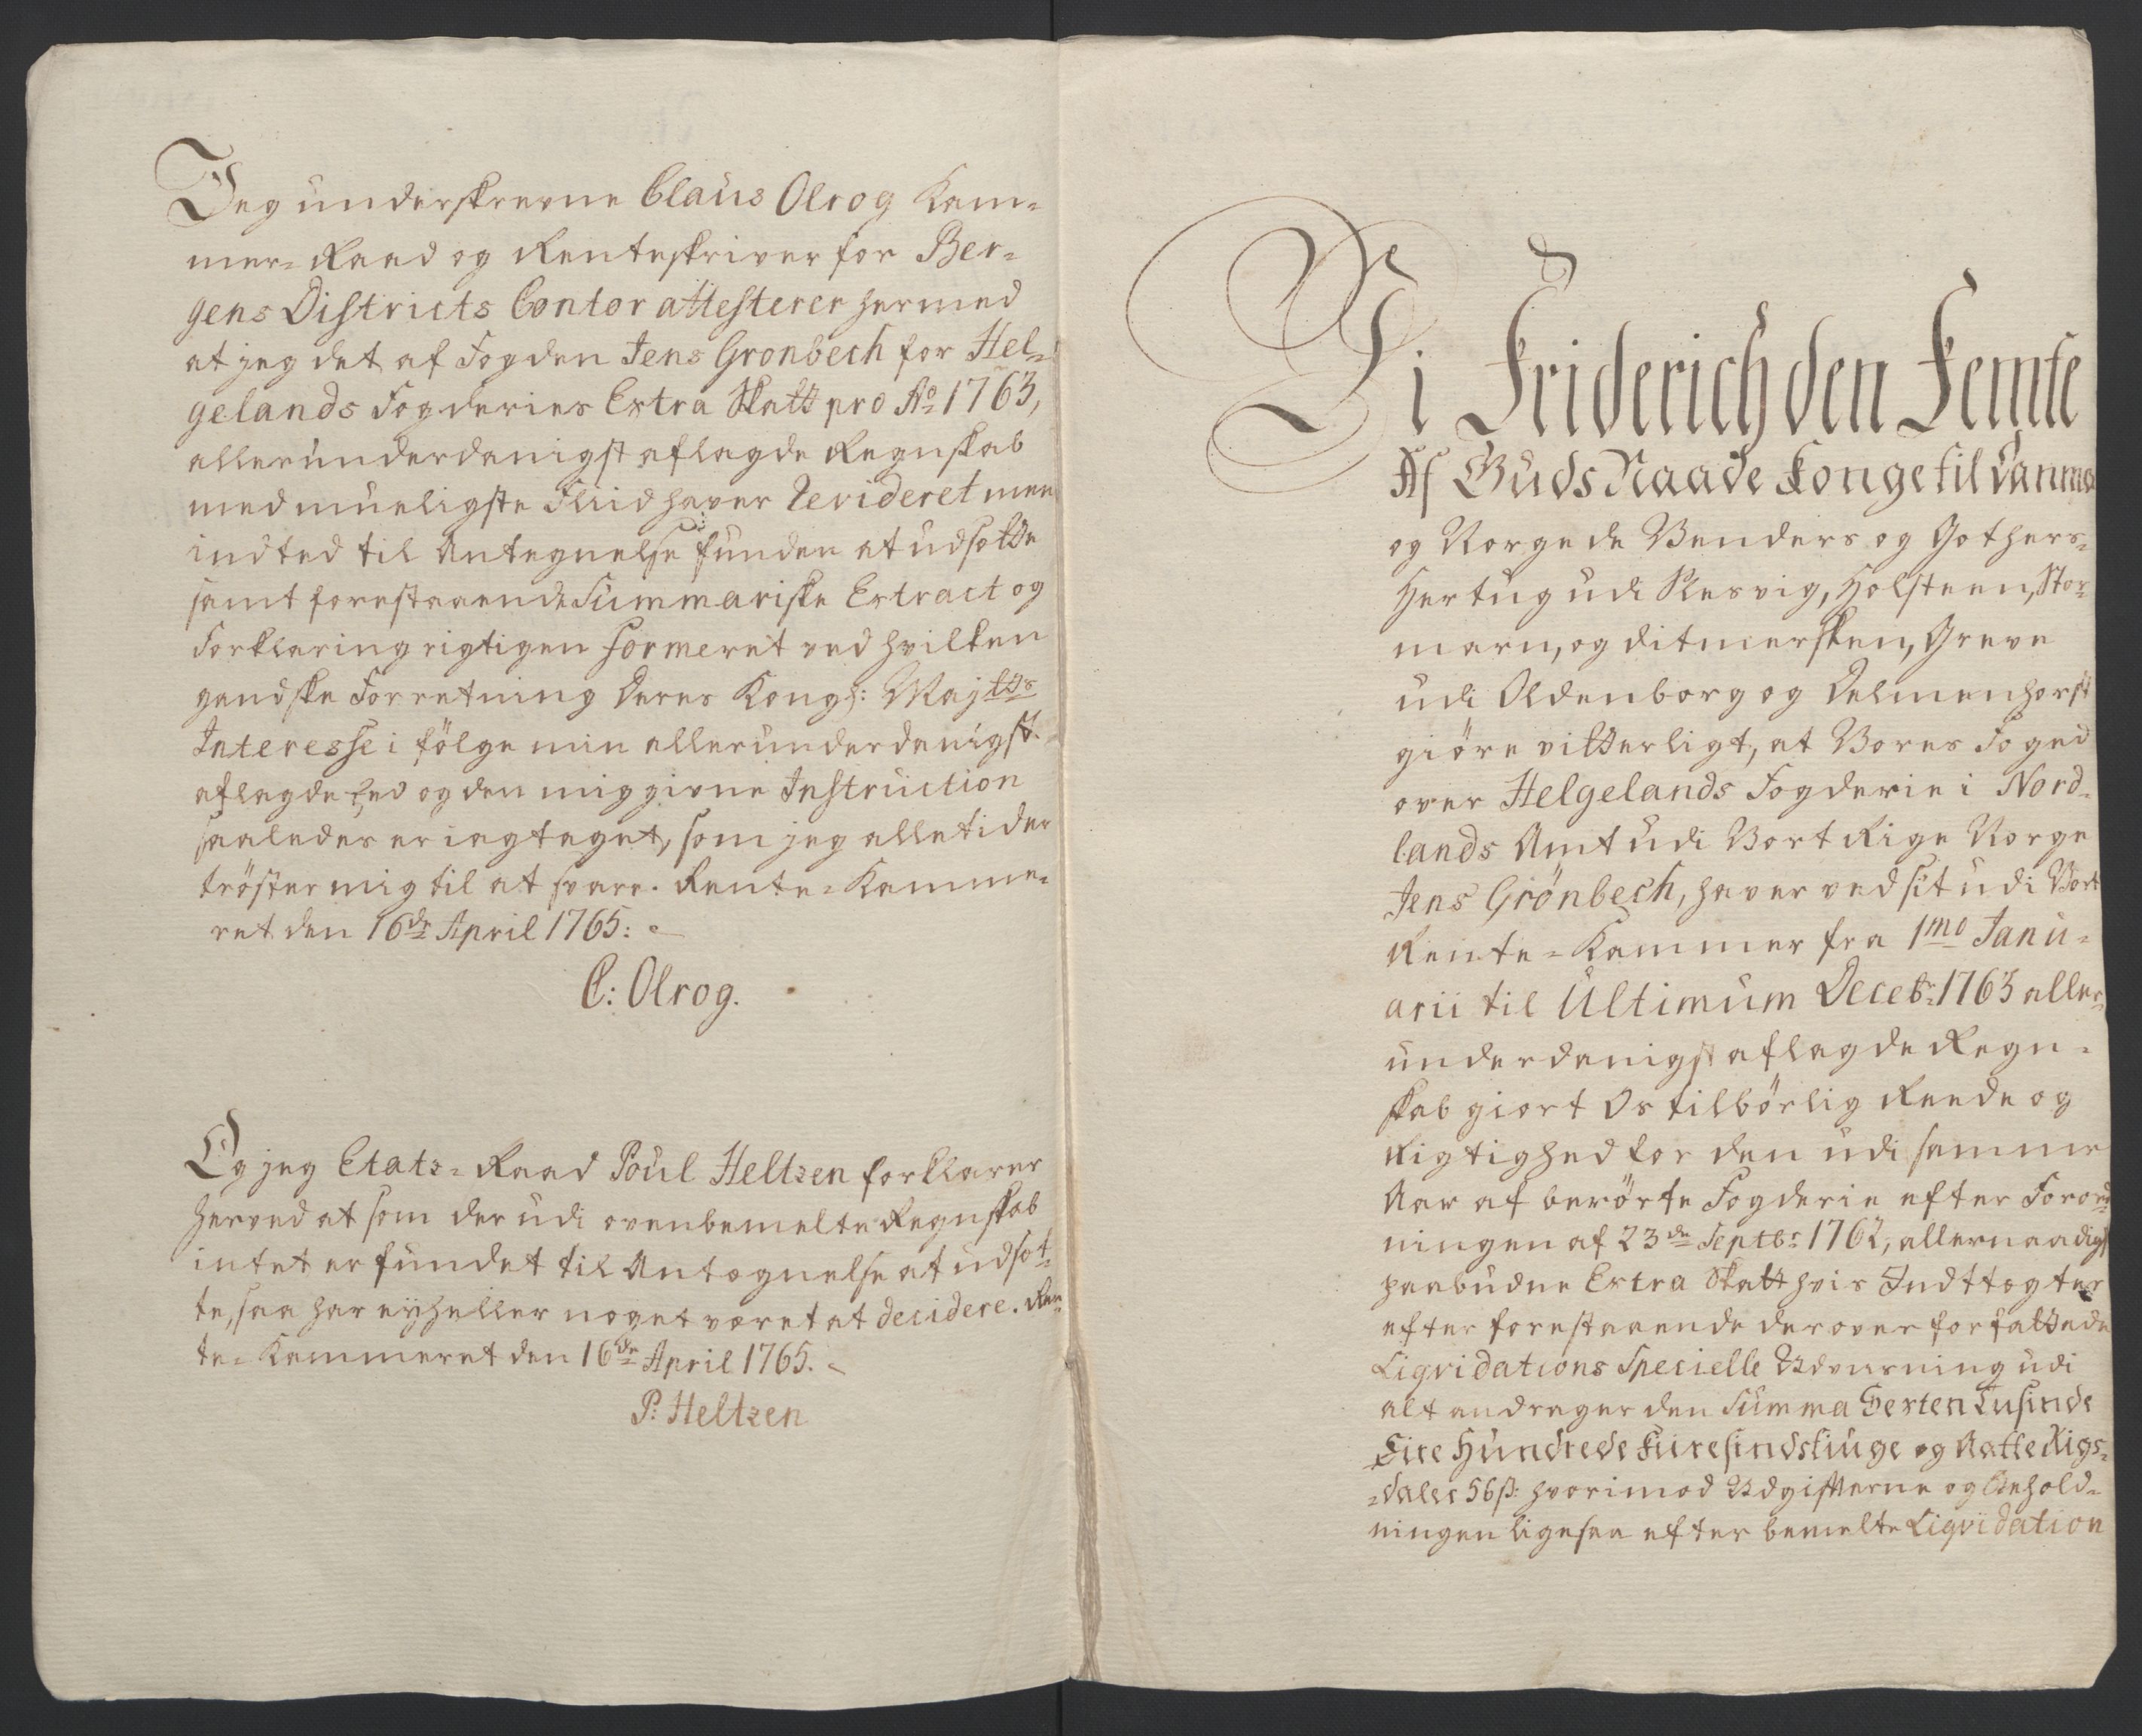 Jeg underskrevne Claus Olrog Kam-
mer-Raad og Renteskriver for Ber-
gens Districts Contor attesterer hermed
at jeg det af Fogden Jens Gronbech for Hel-
gelands Fogderies Extra Skatt pro Ao 1763,
allerunderdanigst aflagde Regnskab
med mueligste Fliid haver Revideret men
indted til Antegnelse funden at udsætte
samt forestaaende Summariske Extract og
Forklaring rigtigen formeret ved hvilken
gandske Forretning Deres Kongl: Majtts
Interesse i følge min allerunderdanigst
aflagde Eed og den mig givne Instruction
saaledes er iagtaget, som jeg alletider
trøster mig til at svare. Rente-Kamme-
ret den 16de April 1765:
C: Olrog.
Og jeg Etats-Raad Poul Heltzen forklarer
herved at som der udi ovenbemelte Regnskab
intet er fundet til Antegnelse at udsæt-
te, saa har eyheller noget været at decidere. Ren-
te-Kammeret den 16de April 1765.
P: Heltzen
Vi Friderich den Femte
Af Guds Naade Konge til Danmar
og Norge de Venders og Gothers-
Hertug udi Slesvig, Holsteen, Stor-
marn, og Ditmersken, Greve
udi Oldenborg og Delmenhorst
giøre vitterligt, at Vores Foged
over Helgelands Fogderie i Nord-
lands Amt udi Vort Rige Norge
Jens Grönbech, haver ved sit udi Vort
Rente-Kammer fra 1mo Janu-
arii til Ultimum Decebr: 1763 aller-
underdanigst aflagde Regn-
skab giort Os tilbørlig Reede og
Rigtighed for den udi samme
Aar af berørte Fogderie efter Forord-
ningen af 23de Septbr: 1762, allernaadigst
paabudne Extra Skatt hvis Indttægter
efter forestaaende derover forfattede
Liqvidations Specielle Udviisning udi
alt andrager den Summa Sexten Tusinde
Fire Hundrede Fiiresindstiuge og Aatte Rigs-
-daler 56 s: hvorimod Udgifterne og Behold-
ningen ligesaa efter bemelte Liqvidation